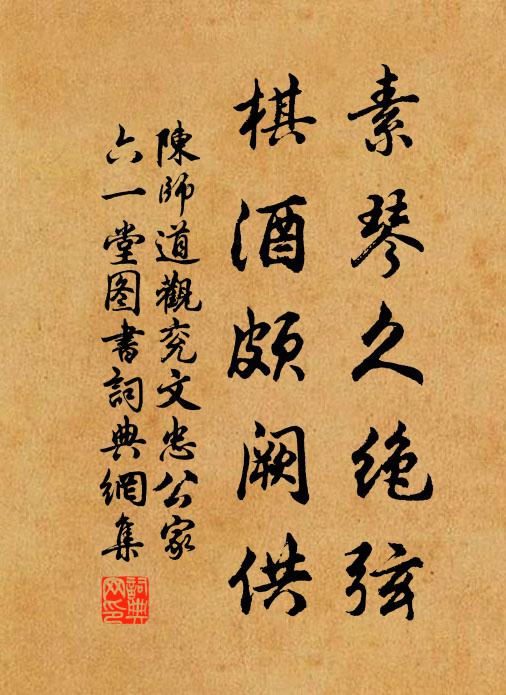 素琴久绝弦
棋酒颇阙供
陳師道觀兖文忠公家
六一堂图書詞典網集
詞典
网印